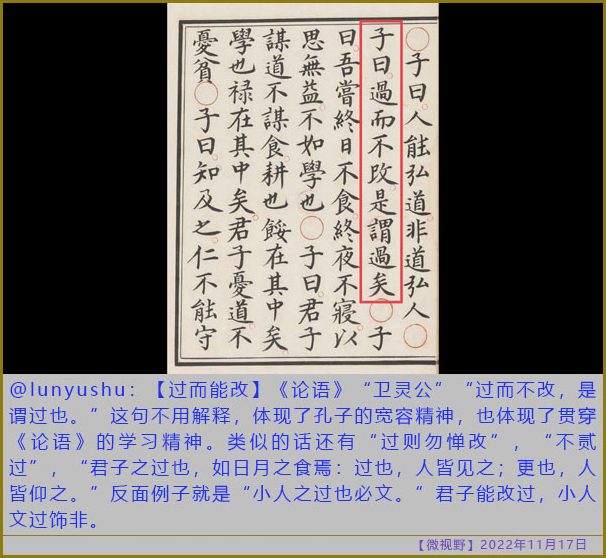 ○子曰人能弘道非道弘人○
子曰過而不改是謂過矣○子
曰吾嘗終日不食終夜不寢以
思無益不如學也○子曰君子
謀道不謀食耕也餒在其中矣
學也禄在其中矣君子憂道不
憂貧○子曰知及之仁不能守
@lunyushu：【过而能改】《论语》“卫灵公”“过而不改，是
谓过也。”这句不用解释，体现了孔子的宽容精神，也体现了贯穿
《论语》的学习精神。类似的话还有“过则勿惮改”，“不贰
过”，“君子之过也，如日月之食焉：过也，人皆见之；更也，人
皆仰之。”反面例子就是“小人之过也必文。”君子能改过，小人
文过饰非。
【微视野】2022年11月17日